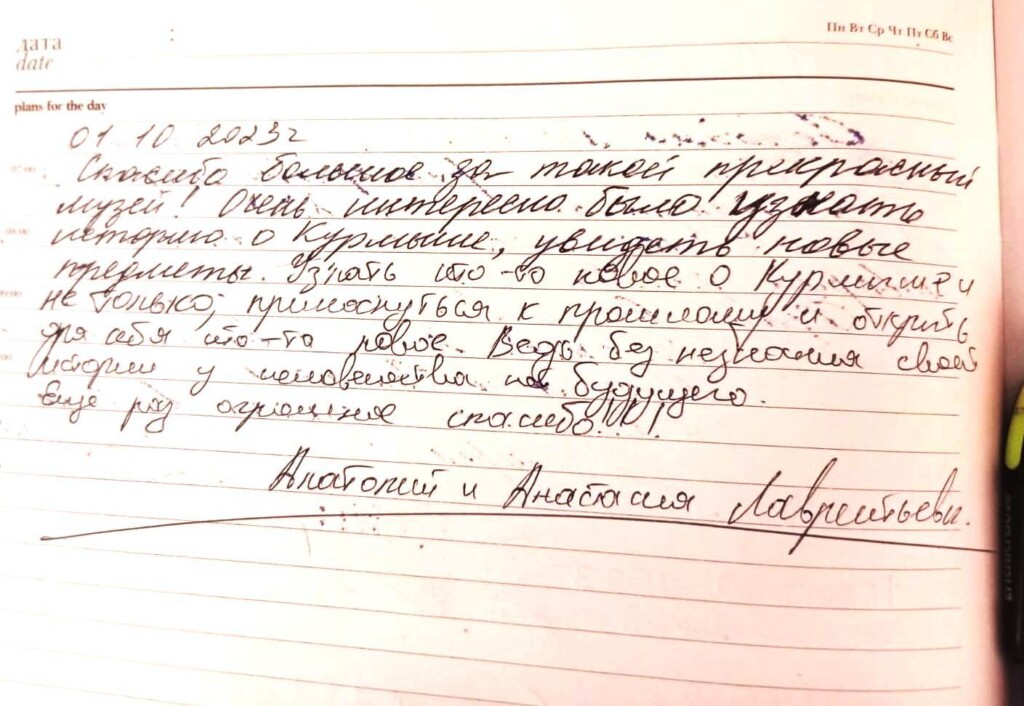 дата
date
:
Пн Вт Ср Чт Пт Сб Вс
plans for the day
01.10 2023г
07:00
Спасибо большое за такой прекрасный
музей! Очень интересно было узнать
08:00
историю о Курмыше, увидеть новые
предметы. Узнать что-то новое о Курмыше и
09:00
не только, прикоснуться к прошлому и открыть
для себя что-то новое. Ведь без незнания своей
истории у человечества нет будущего.
Еще раз огромное спасибо!!!
Анатолий и Анастасия Лаврентьевы.